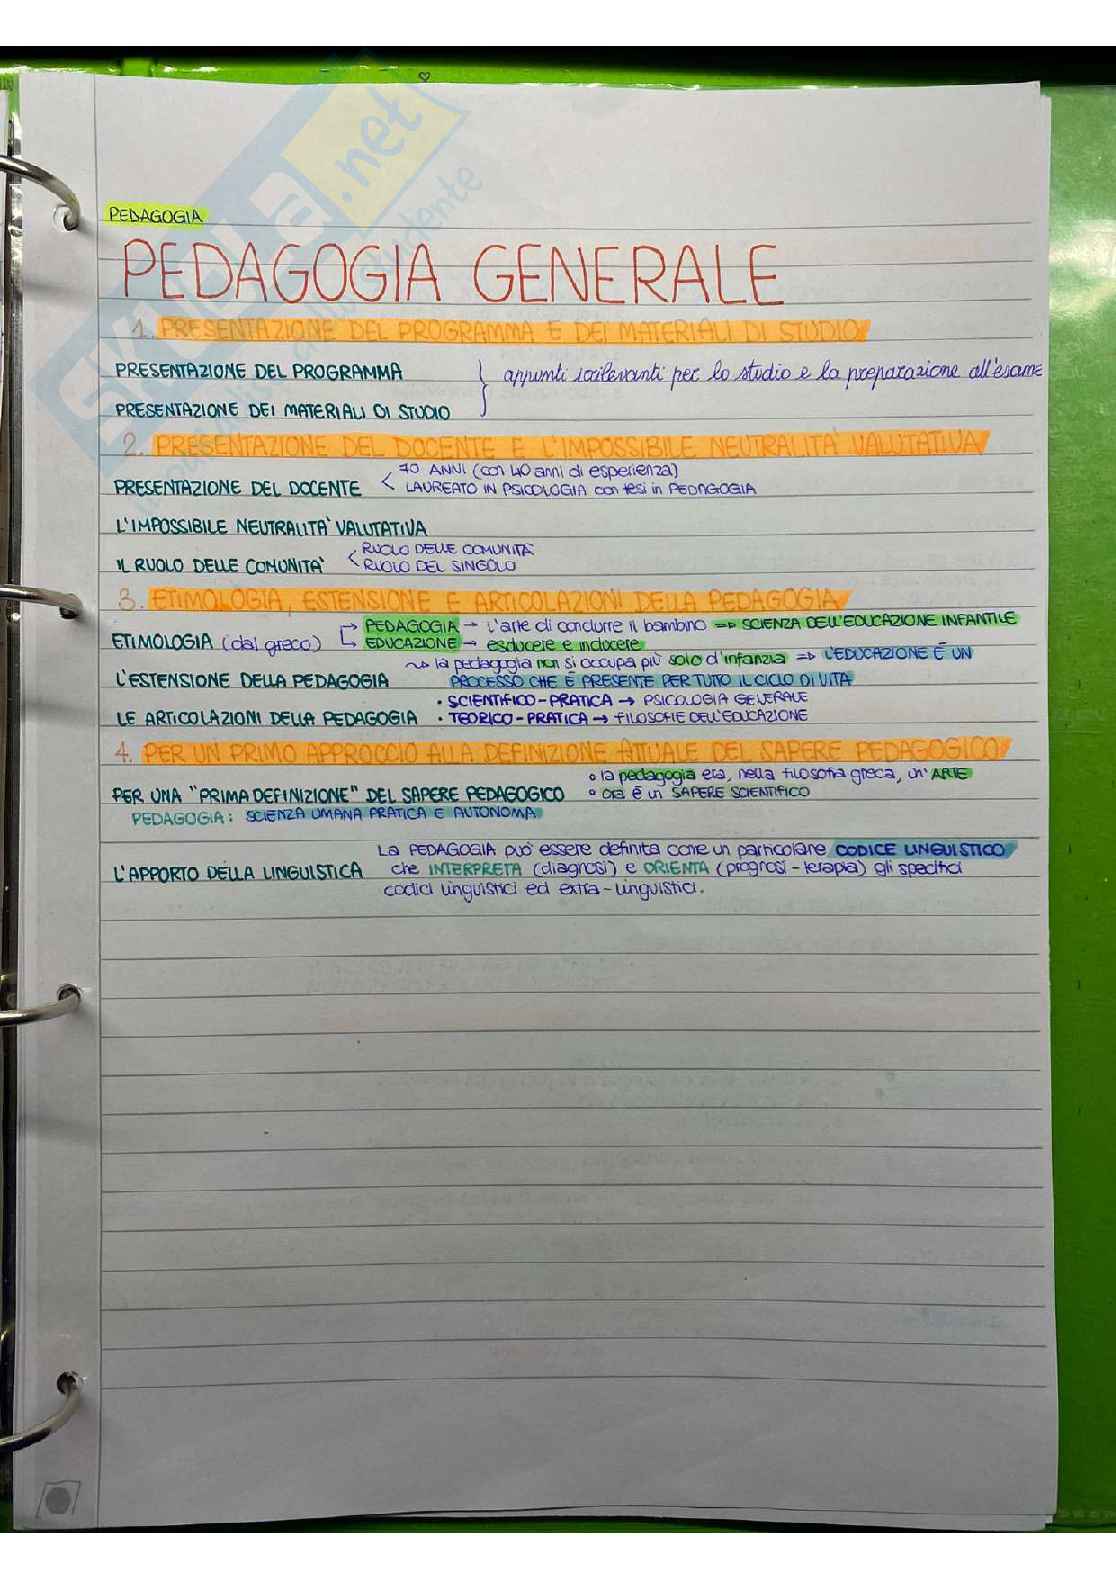 PEDAGOGIA
PEDAGOGIA GENERALE
1. PRESENTAZIONE DEL PROGRAMMA E DEI MATERIALI DI STUDIO
PRESENTAZIONE DEL PROGRAMMA
appunti irrilevanti per lo studio e la preparazione all'esame
PRESENTAZIONE DEI MATERIALI DI STUDIO
2. PRESENTAZIONE DEL DOCENTE E L'IMPOSSIBILE NEUTRALITA' VALUTATIVA
70 ANNI (con 40 anni di esperienza)
PRESENTAZIONE DEL DOCENTE < LAUREATO IN PSICOLOGIA con tesi in PEDAGOGIA
L'IMPOSSIBILE NEUTRALITA' VALUTATIVA
RUOLO DELLE COMUNITÀ
IL RUOLO DELLE COMUNITA' < RUOLO DEL SINGOLO
3. ETIMOLOGIA, ESTENSIONE E ARTICOLAZIONI DELLA PEDAGOGIA
→ PEDAGOGIA → l'arte di condurre il bambino => SCIENZA DELL'EDUCAZIONE INFANTILE
ETIMOLOGIA (dal greco) → EDUCAZIONE → esducere e inducere
~> la pedagogia non si occupa più solo d'infanzia => L'EDUCAZIONE È UN
L'ESTENSIONE DELLA PEDAGOGIA PROCESSO CHE È PRESENTE PER TUTTO IL CICLO DI VITA
• SCIENTIFICO-PRATICA → PSICOLOGIA GENERALE
LE ARTICOLAZIONI DELLA PEDAGOGIA • TEORICO-PRATICA → FILOSOFIE DELL'EDUCAZIONE
4. PER UN PRIMO APPROCCIO ALLA DEFINIZIONE ATTUALE DEL SAPERE PEDAGOGICO
• la pedagogia era, nella filosofia greca, un'ARTE
PER UNA "PRIMA DEFINIZIONE" DEL SAPERE PEDAGOGICO • ora è un SAPERE SCIENTIFICO
PEDAGOGIA: SCIENZA UMANA PRATICA E AUTONOMA
La PEDAGOGIA può essere definita come un particolare CODICE LINGUISTICO
L'APPORTO DELLA LINGUISTICA che INTERPRETA (diagnosi) e ORIENTA (prognosi-terapia) gli specifici
codici linguistici ed extra-linguistici.